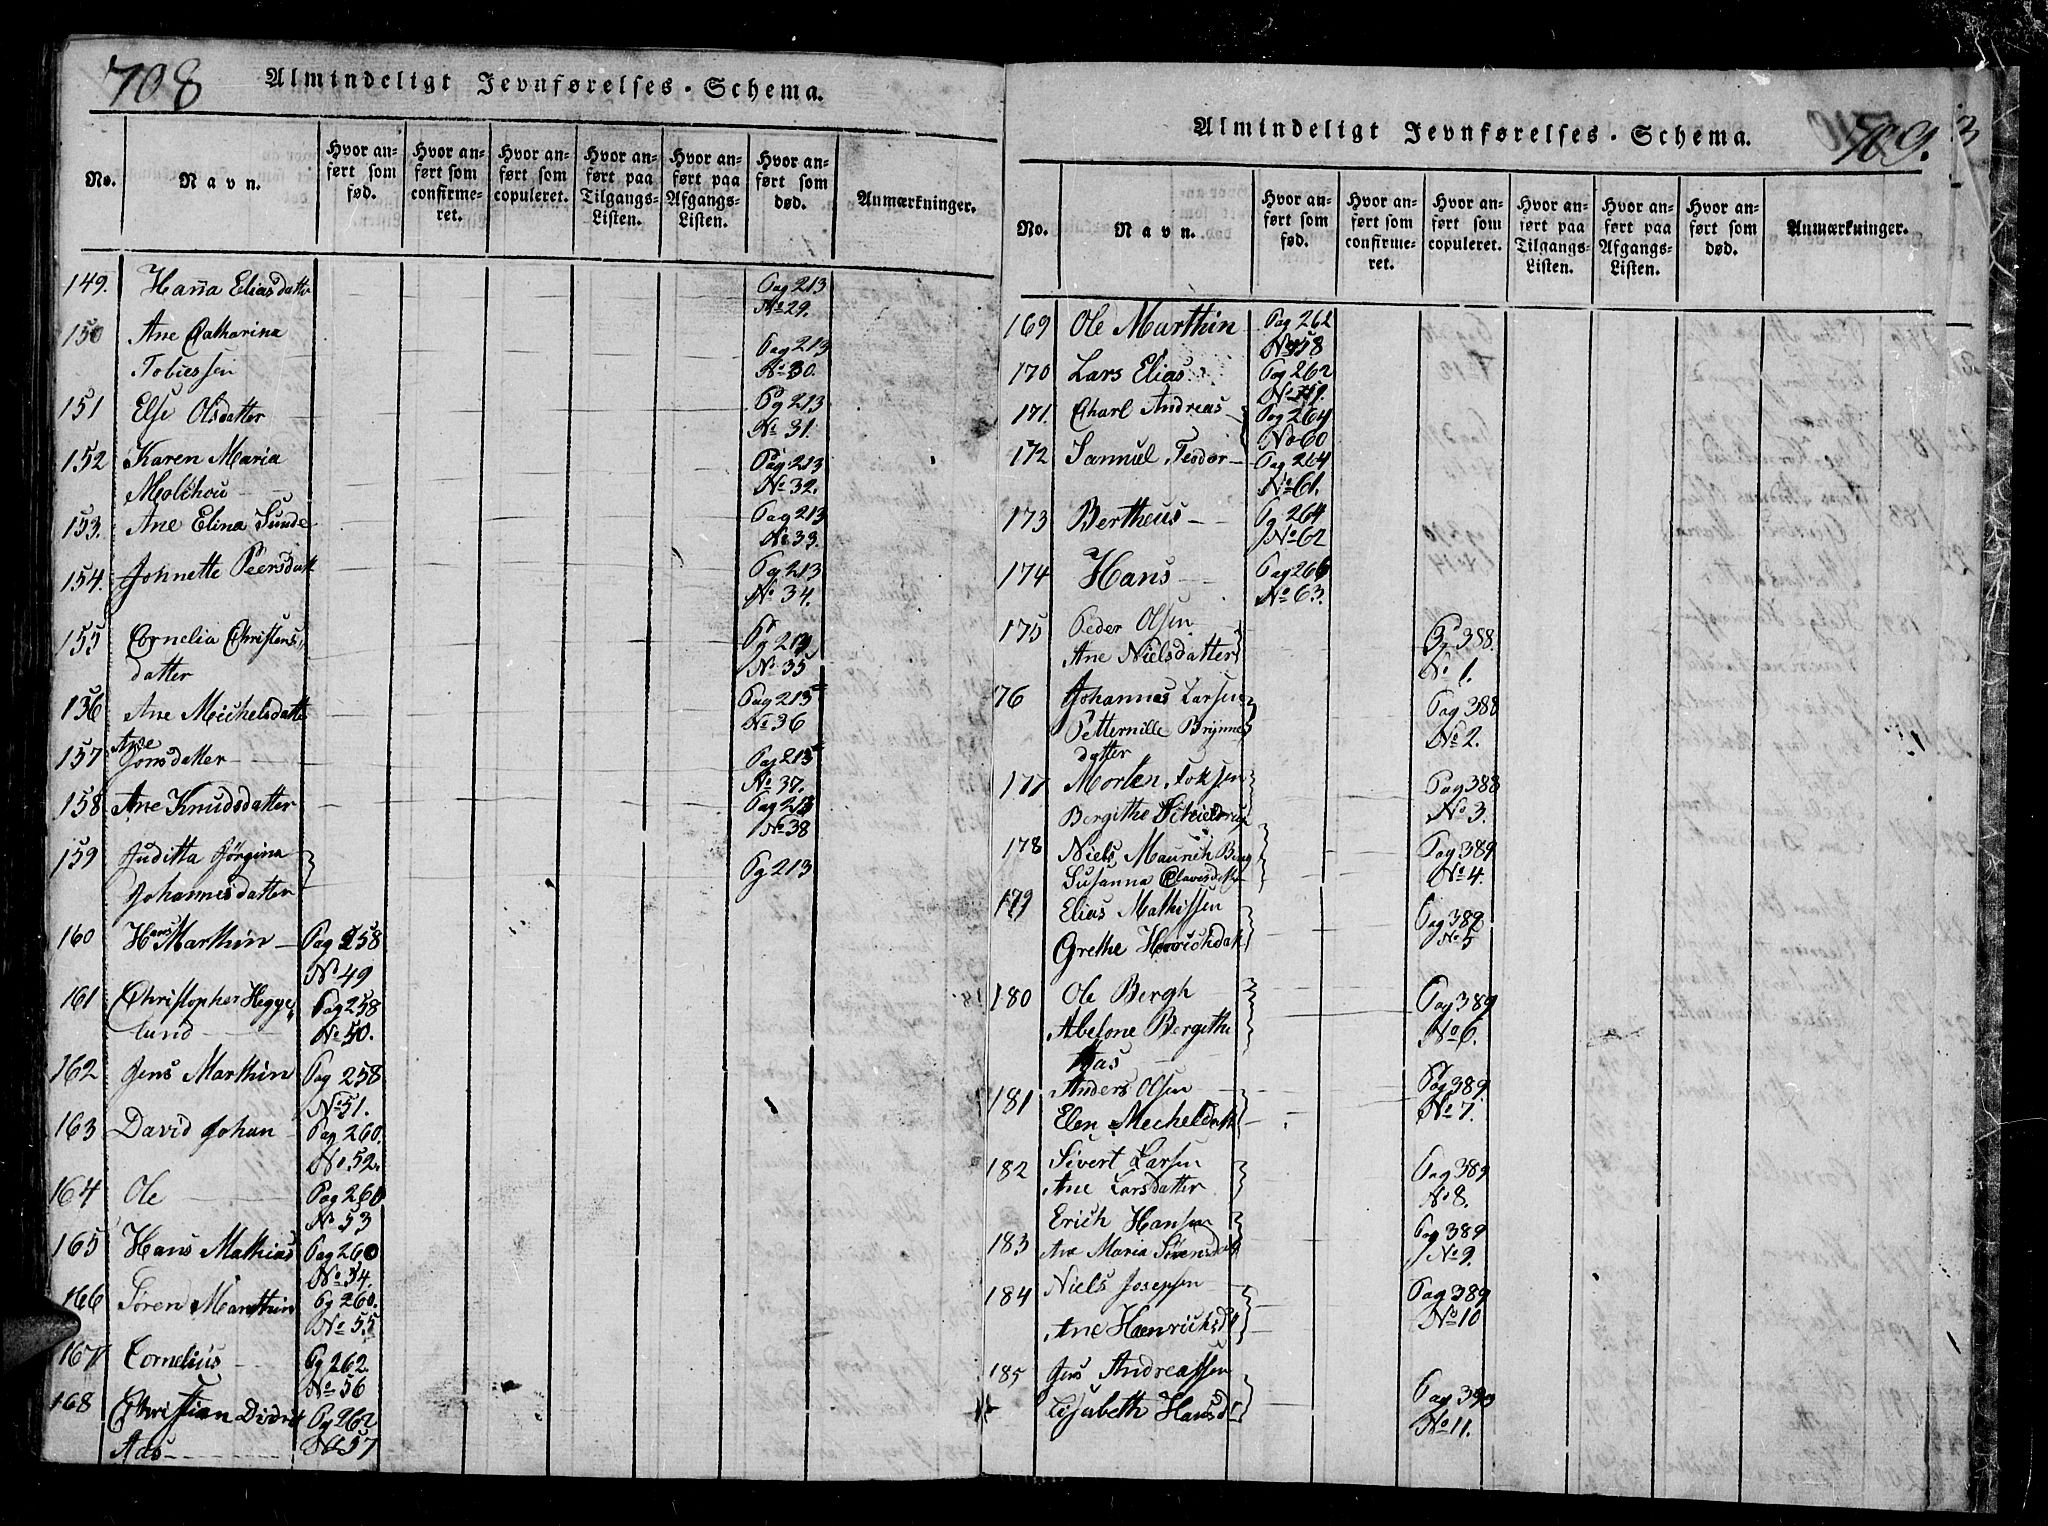 708
Almindeligt Jevnførelses-Schema.
No.
Navn.
Hvor anført som fød.
Hvor anført som confirmeret.
Hvor anført som copuleret.
Hvor anført paa Tilgangs-Listen.
Hvor anført paa Afgangs-Listen.
Hvor anført som død.
Anmærkninger.
149. Hanna Eliasdatter Pag 213
No 29.
150 Ane Catharina
Tobiessen Pag 213
No 30.
151 Else Olsdatter Pg 213
No 31.
152 Karen Maria Pag 213
No 32.
153. Ane Elina Sunde Pag 213
No 33.
154. Johnette Peersdatt Pg 213
No 34.
155 Cornelia Christens
datter Pg 213
No 35
156 Ane Michelsdatter Pag 215
No 36
157 Ane
Jonsdatter Pag 215
No 37.
158 Ane Knudsdatter Pag 213
No 38
159 Juditta Jørgina
Johannesdatter Pg 213
160 Hans Marthin Pag 258
No 49
161 Christopher Hegge
lund Pag 258
No 50.
162 Jens Marthin Pag 258
No 51.
163 David Johan Pag 260.
No 52.
164 Ole Pag 260
No 53
165 Hans Mathias Pag 260
No 54.
166 Søren Marthin Pg 260.
No 55
167 Cornelius Pg 262.
No 56
168 Christian Didrik Pg 262
Aas No 57
709.
3
Almindeligt Jevnførelses-Schema.
No.
Navn.
Hvor anført som fød.
Hvor anført som confirmeret.
Hvor anført som copuleret.
Hvor anført paa Tilgangs-Listen.
Hvor anført paa Afgangs-Listen.
Hvor anført som død.
Anmærkninger.
169 Ole Marthin Pag 262
No 58
170 Lars Elias Pag 262
No 59.
171. Charl Andreas Pag 264
No 60
172 Samuel Teodor Pag 264
No 61.
173 Bertheus Pg 264
No 62
174 Hans Pag 266
No 63.
175 Peder Olsen
Ane Nielsdatter Pg 388.
No 1.
176 Johannes Larsen Pag 388
Petternille Brynnes
datter No 2.
177 Morten Pag 388
Bergithe No 3.
178 Niels Maurith Berg Pag 389
Susanna No 4.
179 Elias Mathissen Pag 389
Grethe Henrichdatt No 5
180 Ole Bergh Pag 389
Abelone Bergithe No 6.
Aas
181 Anders Olsen Pag 389.
Elen Mecheldatt No 7.
182 Sivert Larsen Pag 389
Ane Larsdatter No 8.
183 Erich Hansen Pag 389
Ane Maria Sørensdatt No 9.
184 Niels Josephsen Pag 389
Ane Henrichsd No 10
185 Jens Andreassen Pag 390
Lisabeth Hansd No 11.